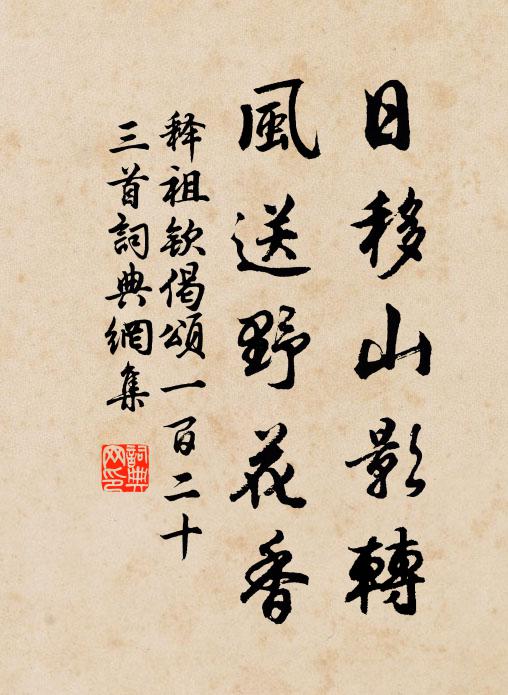 日移山影轉
風送野花香
释祖欽偈頌一百二十
三首詞典網集
詞典网印